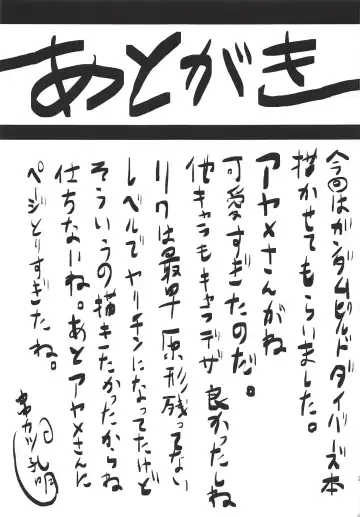 あとがき
今回はガンダムビルドダイバーズ本
描かせてもらいました。
アヤメさんがね
可愛すぎたのだ。
他キャラもキャラデザ良かったしね
リクは最早原形残ってない
レベルでヤリチンになってたけど
そういうの描きたかったからね
仕ちないね。あとアヤメさんに
ページとりすぎたね。
串カツ孔明